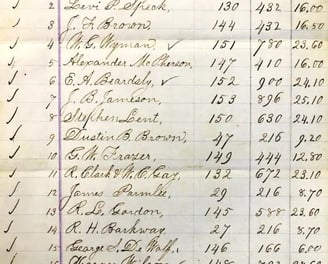 ✓ 2 Levi P. Speck, 130 432 16.00
✓ 3 J. F. Brown, 144 432 16.50
✓ 4 W. G. Wyman, ✓ 151 780 23.60
✓ 5 Alexander McPherson, 147 410 16.00
✓ 6 E. A. Beardsly, ✓ 152 900 24.10
✓ 7 J. B. Jameson, 153 896 25.10
✓ 8 Stephen Lent, 150 630 24.10
✓ 9 Dustin B. Brown, 47 216 9.20
✓ 10 G. W. Frazer, 149 444 12.80
✓ 11 R. Clark & W. O. Gay, 132 672 23.10
✓ 12 James Parmlee, 29 216 8.70
✓ 13 R. L. Gordon, 145 588 23.60
✓ 14 R. H. Barkway, 27 216 8.70
✓ 15 George S. De Wolf, 146 166 6.00